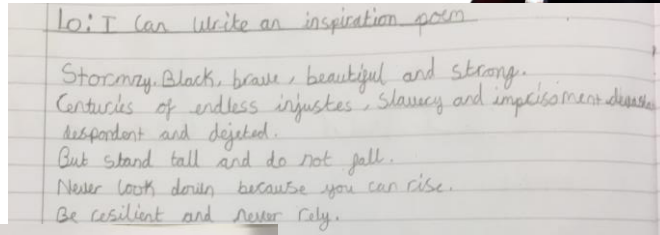 Lo: I Can write an inspiration poem
Stormzy. Black, brave, beautiful and strong.
Centuries of endless injustes, Slavery and imprisoment
despondent and dejected.
But stand tall and do not fall.
Never look down because you can rise.
Be resilient and never rely.